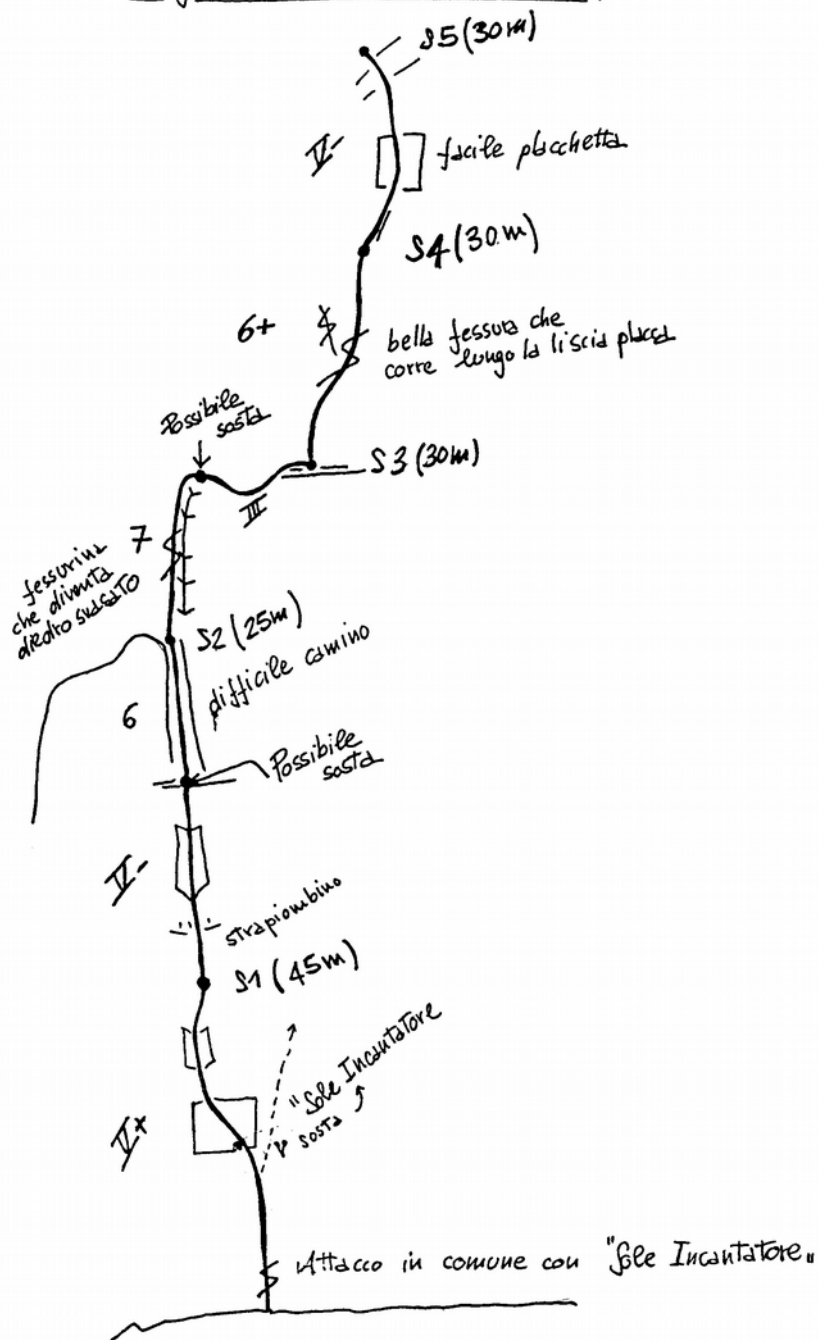 S5 (30m)
V-
facile placchetta
S4 (30m)
6+
bella fessura che
corre lungo la liscia placca
Possibile
sosta
S3 (30m)
III
7
fessurina
che diventa
diedro svasato
S2 (25m)
difficile camino
6
Possibile
sosta
V-
strapiombino
S1 (45m)
"Sole Incantatore
sosta
V+
Attacco in comune con "Sole Incantatore"